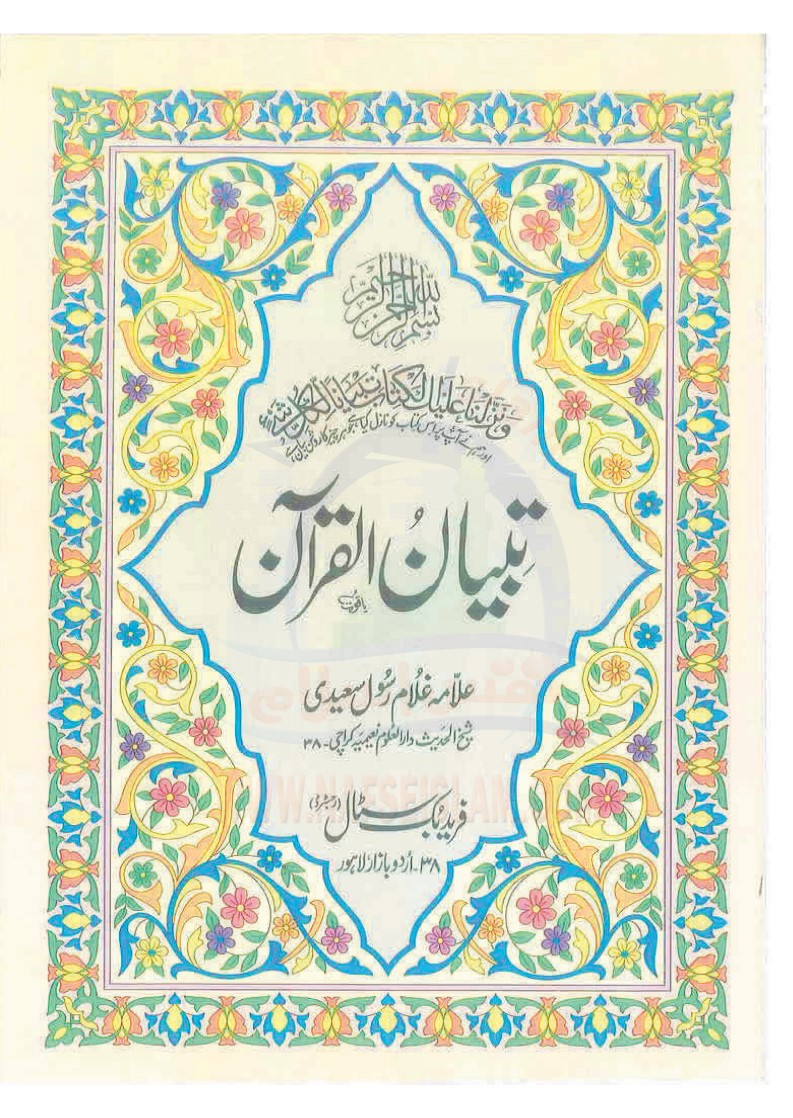 بسم الله الرحمن الرحيم
ونزلنا عليك الكتاب تبيانا لكل شىء
اور ہم نے آپ پر اس کتاب کو نازل کیا ہے جو ہر چیز کا روشن بیان ہے
تِبیانُ القرآن
یاقوت
علّامہ غلام رسُول سعیدی
شیخ الحدیث دارالعلوم نعیمیہ کراچی۔ ۳۸
فرید بُک سٹال (رجسٹرڈ)
۳۸۔ اُردو بازار لاہور
WWW.NAFSEISLAM.COM